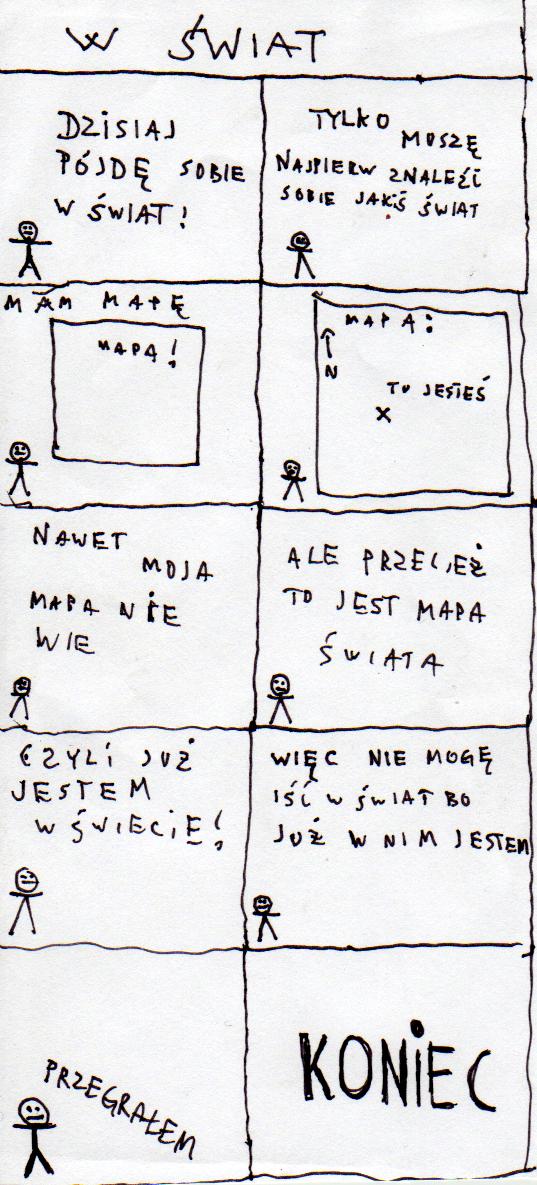 W ŚWIAT
DZISIAJ
PÓJDĘ SOBIE
W ŚWIAT!
TYLKO
MUSZĘ
NAJPIERW ZNALEŹĆ
SOBIE JAKIŚ ŚWIAT
MAM MAPĘ
MAPA!
MAPA:
N
TU JESTEŚ
X
NAWET
MOJA
MAPA NIE
WIE
ALE PRZECIEŻ
TO JEST MAPA
ŚWIATA
CZYLI JUŻ
JESTEM
W ŚWIECIE!
WIĘC NIE MOGĘ
IŚĆ W ŚWIAT BO
JUŻ W NIM JESTEM
PRZEGRAŁEM
KONIEC